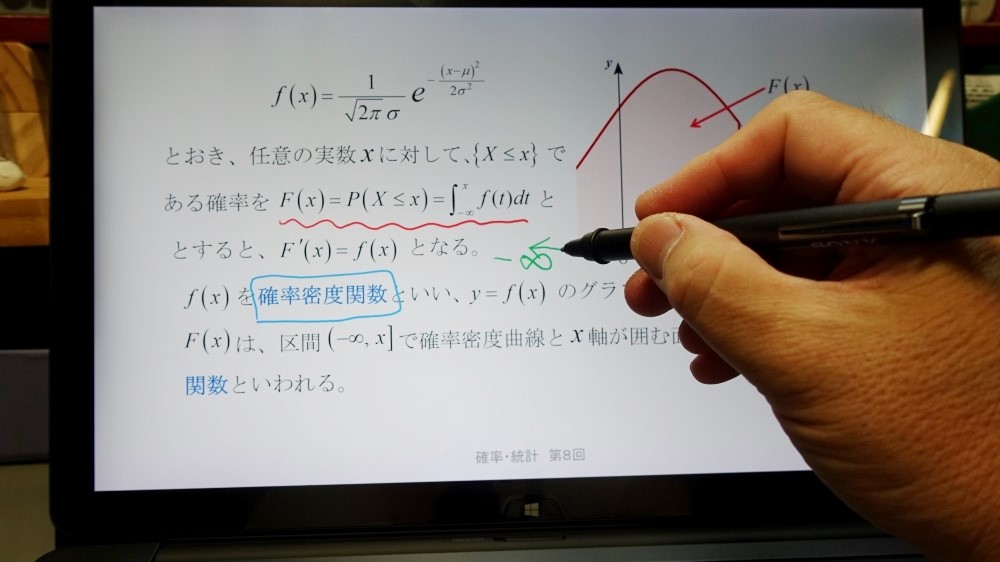 f(x)=1/√2π σ e^−(x−μ)²/2σ²
y
F(x)
とおき、任意の実数xに対して、{X≤x}で
ある確率をF(x)=P(X≤x)=∫₋∞ˣ f(t)dtと
とすると、F'(x)=f(x)となる。
−∞
f(x)を確率密度関数といい、y=f(x)のグラ
F(x)は、区間(−∞, x]で確率密度曲線とx軸が囲む
関数といわれる。
確率・統計 第8回
SONY